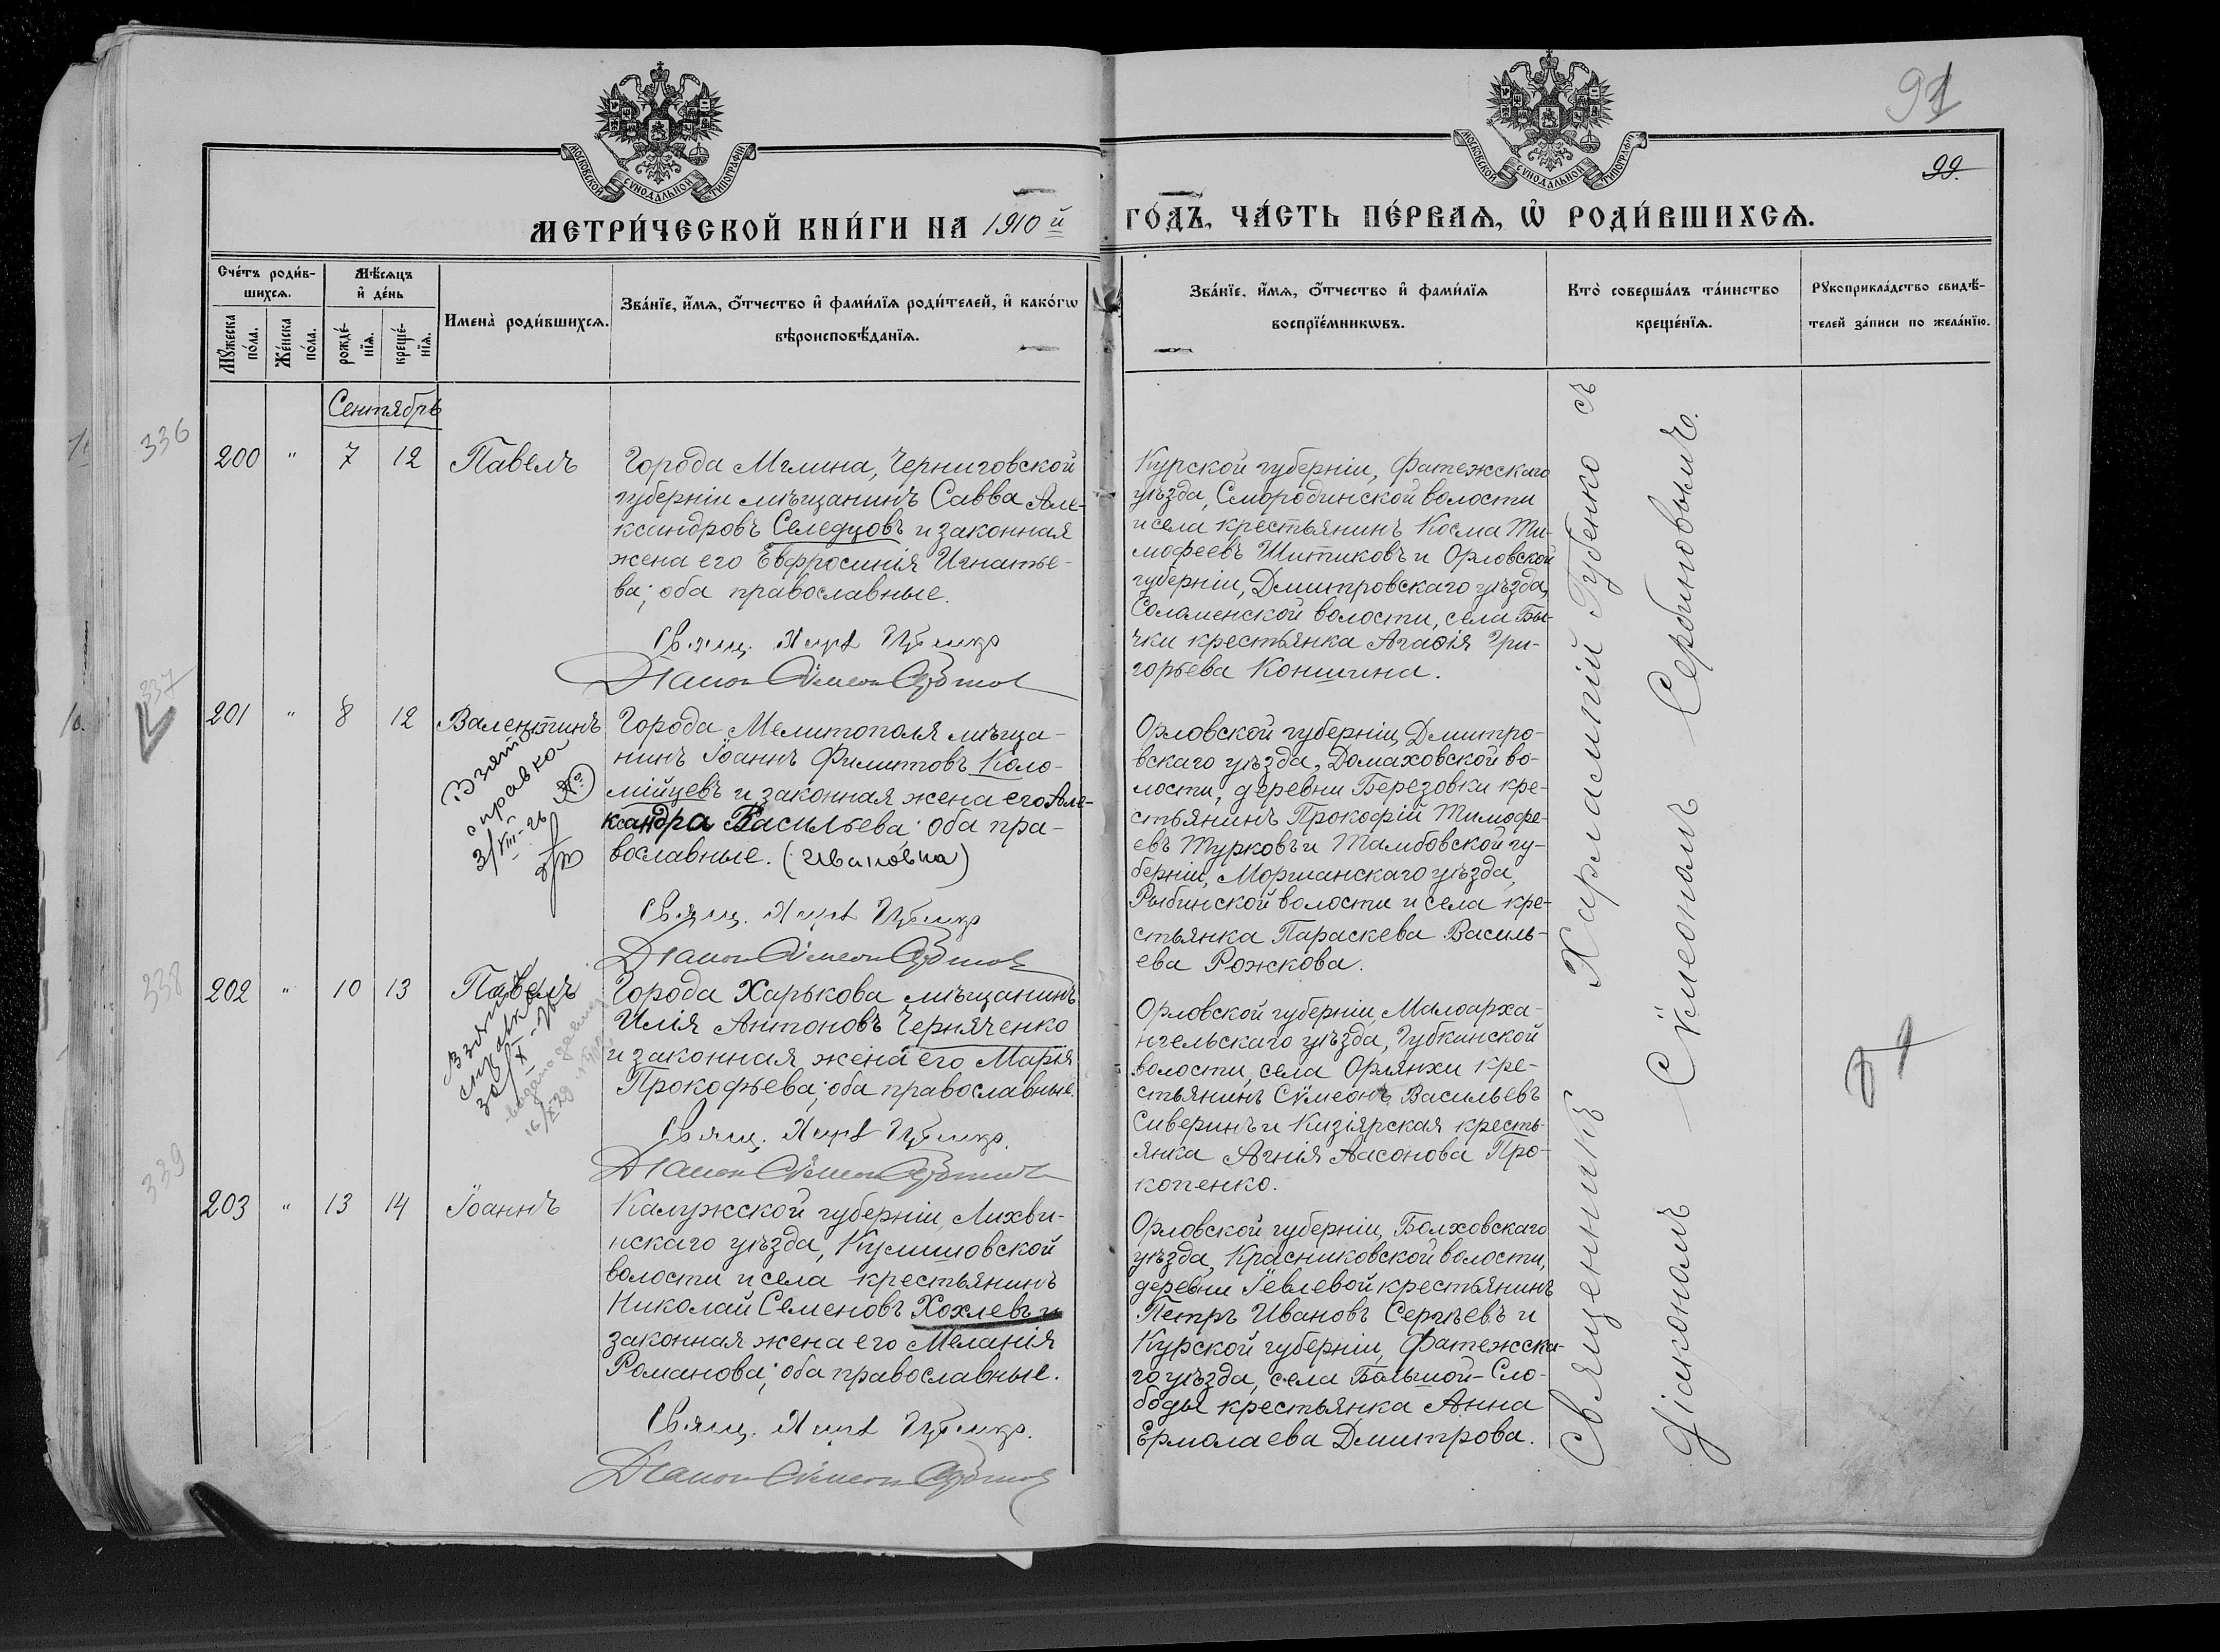 91
99.
МОСКОВСКОЙ СУНОДАЛЬНОЙ ТИПОГРАФІИ
МОСКОВСКОЙ СУНОДАЛЬНОЙ ТИПОГРАФІИ
МЕТРИ́ЧЕСКОЙ КНИ́ГИ НА 1910й ГО́ДЪ, ЧА́СТЬ ПЕ́РВАѦ, Ѡ҆ РОДИ́ВШИХСѦ.
Сче́тъ роди́в-
шихсѧ.
Мѹ́жеска по́ла.
Же́нска по́ла.
Мѣ́сѧцъ
и҆ де́нь
рожде́-
нїѧ.
креще́-
нїѧ.
Имена̀ роди́вшихсѧ.
Зва́нїе, и҆́мѧ, ѻ҆́тчество и҆ фами́лїѧ роди́телей, и҆ како́гѡ
вѣроисповѣ́данїѧ.
Зва́нїе, и҆́мѧ, ѻ҆́тчество и҆ фами́лїѧ
воспрїе́мникѡвъ.
Кто̀ соверша́лъ та́инство
креще́нїѧ.
Рꙋкоприкла́дство свидѣ́-
телей за́писи по жела́нїю.
Сентябрь
336
200 " 7 12 Павелъ
Города Мглина, Черниговской
губерніи мѣщанинъ Савва Але-
ксандровъ Селедцовъ и законная
жена его Евфросинія Игнатье-
ва; оба православные.
Свящ.
Діакон Сѵмеон
Курской губерніи, Фатежскаго
уѣзда, Смородинской волости
и села крестьянинъ Косма Ти-
мофеевъ Шитиковъ и Орловской
губерніи, Дмитровскаго уѣзда,
Соломенской волости, села Бы-
чки крестьянка Агаѳія Гри-
горьева Коншина.
337
201 " 8 12 Валентинъ
Взято
справко
3/VIII-26
Города Мелитополя мѣща-
нинъ Іоаннъ Филиповъ Коло-
мійцевъ и законная жена его Але-
ксандра Васильева; оба пра-
вославные. (Ивановна)
Свящ.
Діакон Сѵмеон
Орловской губерніи, Дмитро-
вскаго уѣзда, Домаховской во-
лости, деревни Березовки кре-
стьянинъ Прокофій Тимофе-
евъ Турковъ и Тамбовской гу-
берніи, Моршанскаго уѣзда,
Рыбинской волости и села кре-
стьянка Параскева Василь-
ева Рожкова.
338
202 " 10 13 Павелъ
Города Харькова мѣщанинъ
Илія Антоновъ Черняченко
и законная жена его Марія
Прокофьева; оба православные.
Свящ.
Діакон Сѵмеон
Орловской губерніи, Малоарха-
нгельскаго уѣзда, Губкинской
волости, села Орлянки кре-
стьянинъ Сѵмеонъ Васильевъ
Сиверинъ и Кизіярская кресть-
янка Агнія Аасонова Про-
копенко.
339
203 " 13 14 Іоаннъ
Калужской губерніи, Лихви-
нскаго уѣзда, Кулишовской
волости и села крестьянинъ
Николай Семеновъ Хохлевъ и
законная жена его Меланія
Романова; оба православные.
Свящ.
Діакон Сѵмеон
Орловской губерніи, Болховскаго
уѣзда, Красниковской волости,
деревни Іевлевой крестьянинъ
Петръ Ивановъ Сергѣевъ и
Курской губерніи, Фатежска-
го уѣзда, села Большой-Сло-
боды крестьянка Анна
Ермолаева Дмитрова.
Священникъ Харлампій Губенко съ
Діакономъ Сѵмеономъ Сербиновымъ.